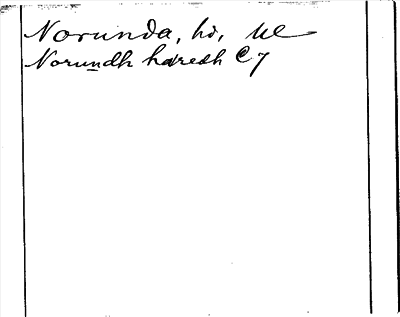 Norunda, hd, Ul
Norundh hdresh C 7